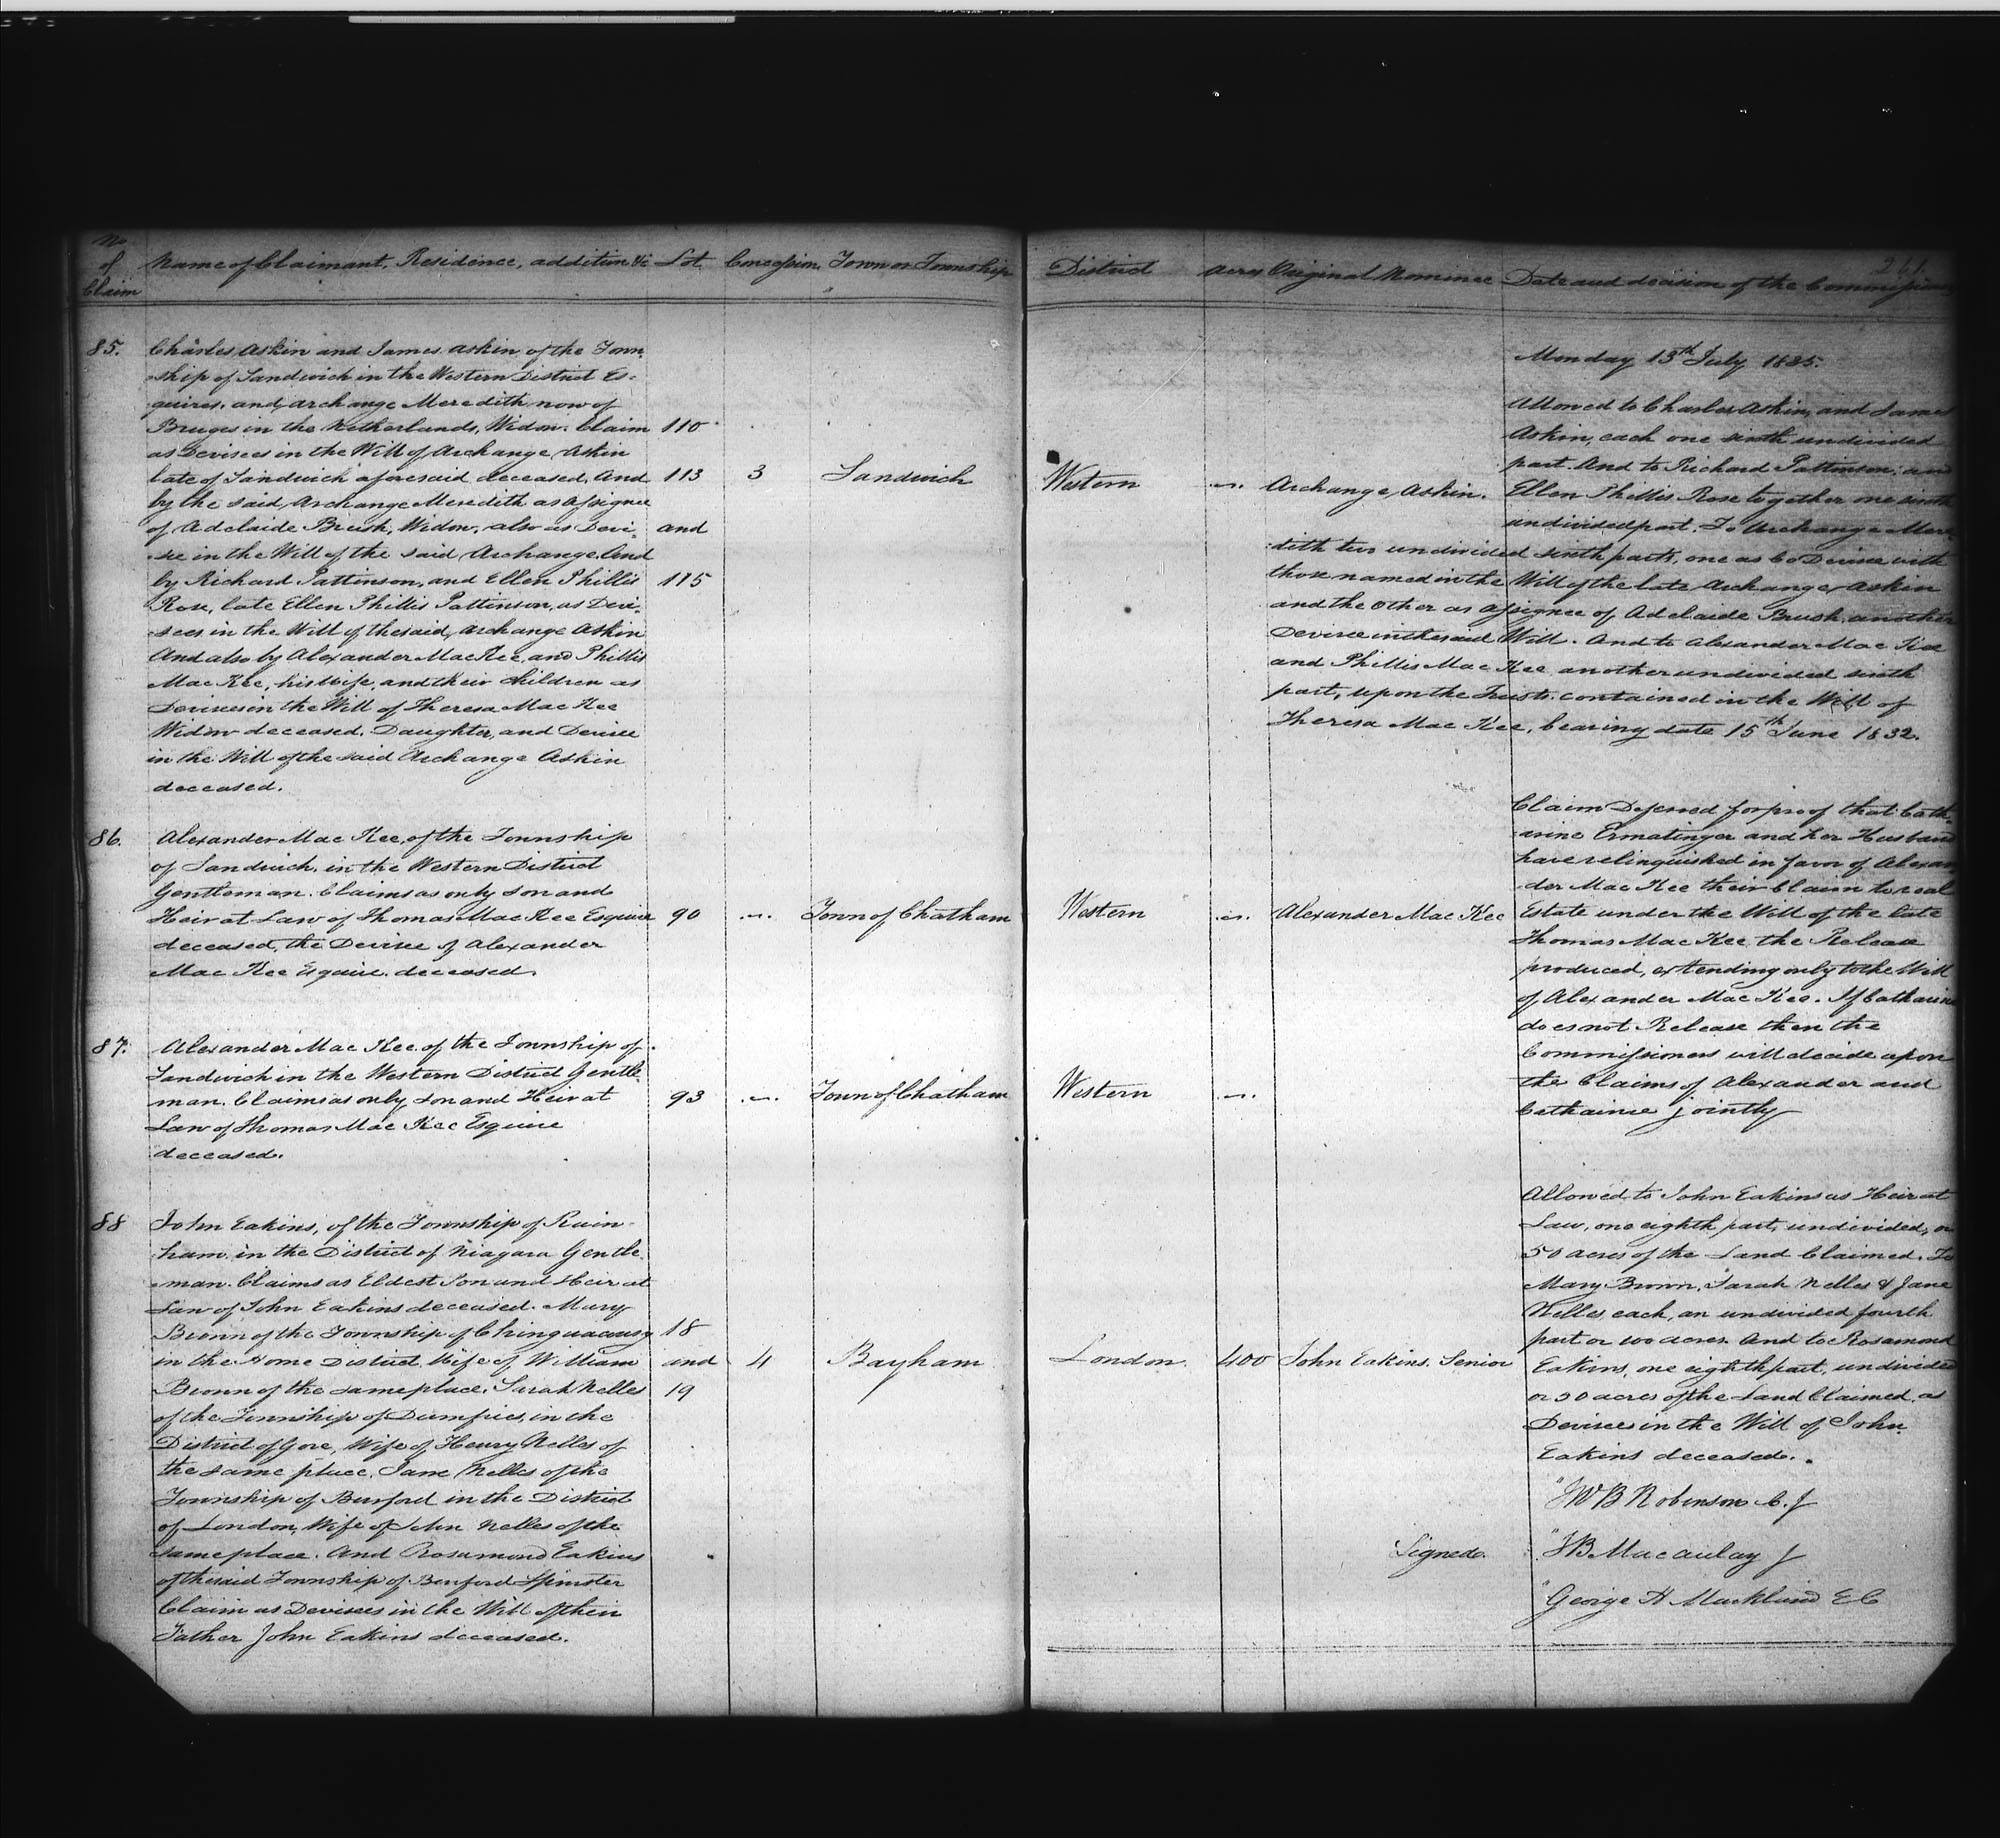 No
of
Claim
Name of Claimant, Residence, addition &c
Lot
Concession
Town or Township
85.
Charles Askin and James Askin of the Town-
ship of Sandwich in the Western District Es-
quires, and Archange Meredith now of
Bruges in the Netherlands, Widow. Claim
as Devisees in the Will of Archange Askin
late of Sandwich aforesaid deceased, And
by the said Archange Meredith as assignee
of Adelaide Brush, Widow, also as Devi-
see in the Will of the said Archange. And
by Richard Pattinson, and Ellen Phillis
Rose, late Ellen Phillis Pattinson, as Devi-
sees in the Will of the said Archange Askin
And also by Alexander Mac Kee, and Phillis
Mac Kee, his Wife, and their Children as
Devisees in the Will of Theresa Mac Kee
Widow deceased, Daughter, and Devisee
in the Will of the said Archange Askin
deceased.
110
113
and
115
3
Sandwich
86.
Alexander Mac Kee, of the Township
of Sandwich, in the Western District
Gentleman. Claims as only Son and
Heir at Law of Thomas Mac Kee Esquire
deceased, the Devisee of Alexander
Mac Kee Esquire deceased.
90
Town of Chatham
87.
Alexander Mac Kee of the Township of
Sandwich in the Western District Gentle-
man. Claims as only Son and Heir at
Law of Thomas Mac Kee Esquire
deceased.
93
Town of Chatham
88
John Eakins, of the Township of Rain-
ham in the District of Niagara Gentle-
man. Claims as Eldest Son and Heir at
Law of John Eakins deceased. Mary
Brown of the Township of Chinguacousy
in the Home District, Wife of William
Brown of the same place. Sarah Nelles
of the Township of Dumfries, in the
District of Gore, Wife of Henry Nelles of
the same place. Jane Nelles of the
Township of Burford in the District
of London, Wife of John Nelles of the
same place. And Rosamond Eakins
of the said Township of Burford Spinster
Claim as Devisees in the Will of their
Father John Eakins deceased.
18
and
19
4
Bayham
District
Acres
Original Nominee
Date and decision of the Commissioners
261.
Monday 13th July 1835.
Western
Archange Askin.
Allowed to Charles Askin, and James
Askin, each one sixth undivided
part. And to Richard Pattinson, and
Ellen Phillis Rose together one sixth
undivided part. To Archange Mere-
dith two undivided sixth parts, one as Co Devisee with
those named in the Will of the late Archange Askin
and the Other as assignee of Adelaide Brush, another
Devisee in the said Will. And to Alexander Mac Kee
and Phillis Mac Kee another undivided sixth
part, upon the Trusts contained in the Will of
Theresa Mac Kee, bearing date 15th June 1832.
Western
Alexander Mac Kee
Claim Deferred for proof that Cath-
arine Ermatinger and her Husband
have relinquished in favor of Alexan-
der Mac Kee their Claim to real
Estate under the Will of the late
Thomas Mac Kee the Release
produced, extending only to the Will
of Alexander Mac Kee. If Catharine
does not Release then the
Commissioners will decide upon
the Claims of Alexander and
Catharine jointly
Western
London
400
John Eakins, Senior
Allowed to John Eakins as Heir at
Law, one eighth part, undivided, or
50 acres of the Land Claimed. To
Mary Brown, Sarah Nelles & Jane
Nelles, each, an undivided fourth
part or 100 acres. And to Rosamond
Eakins, one eighth part, undivided
or 50 acres of the Land Claimed, as
Devisees in the Will of John
Eakins deceased.
Signed.
"JWB Robinson C. J
"JB Macaulay J
"George H Markland E C